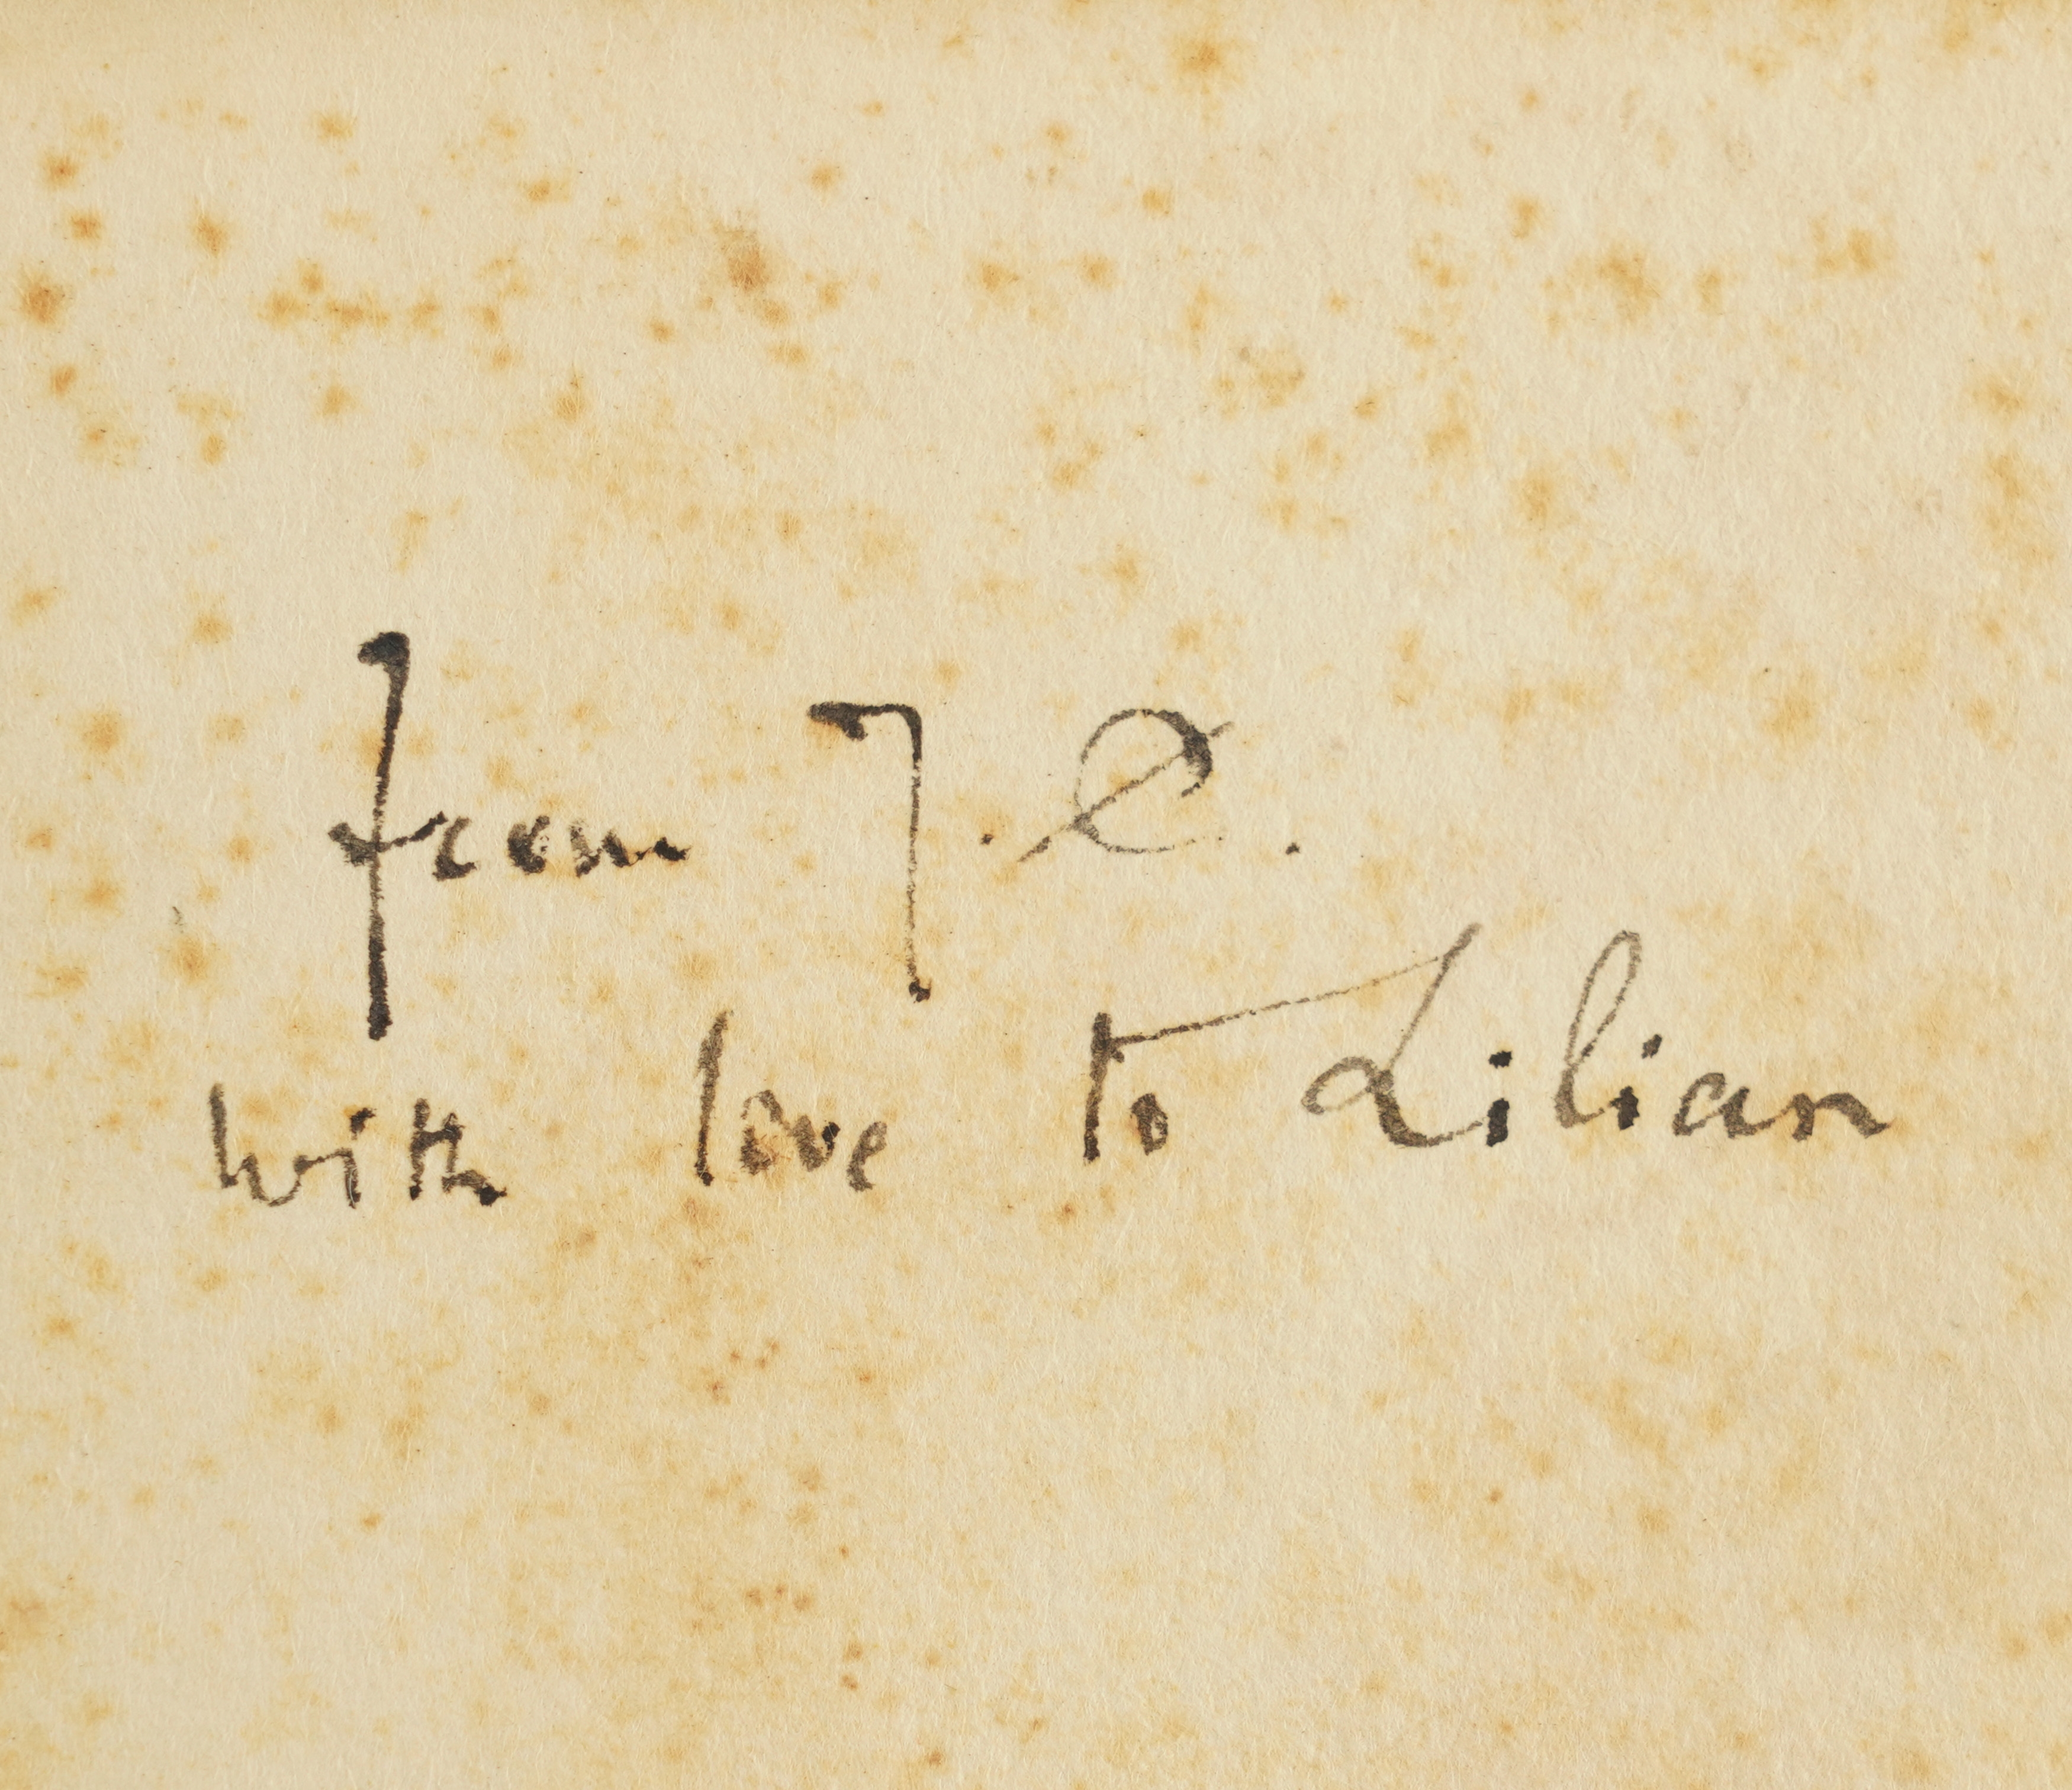 from J. C.
with love to Lilian